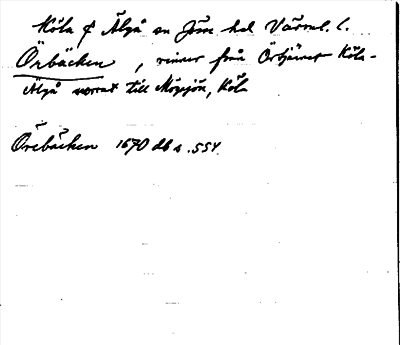 Köla o Älgå sn Jösse hd Värml. l.
Örbäcken , rinner från Örtjärnet Köla-
Älgå norrut till Mösjön, Köla
Örebäcken 1670 db s. 554